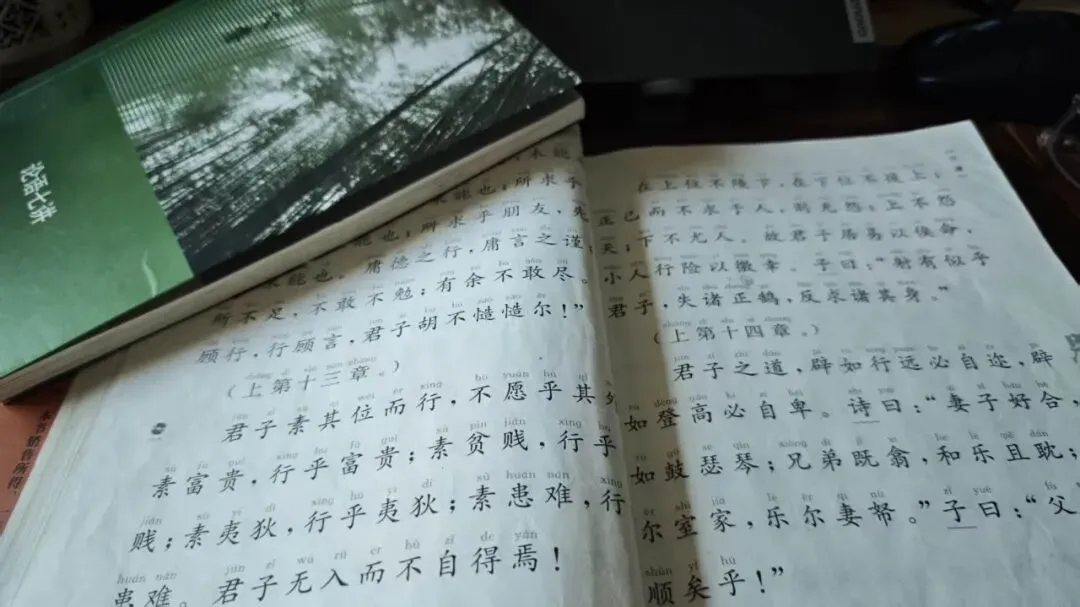 论语七讲
未能
未能也；所求乎
能也；所求乎朋友，先
未能也。庸德之行，庸言之谨；
所不足，不敢不勉；有余不敢尽。
顾行，行顾言，君子胡不慥慥尔！”
（上第十三章。）
君子素其位而行，不愿乎其外
素富贵，行乎富贵；素贫贱，行乎
贱；素夷狄，行乎夷狄；素患难，行
患难。君子无入而不自得焉！
在上位不陵下，在下位不援上；
正己而不求于人，则无怨；上不怨
天；下不尤人。故君子居易以俟命，
小人行险以徼幸。子曰：“射有似乎
君子，失诸正鹄，反求诸其身。”
（上第十四章。）
君子之道，辟如行远必自迩，辟
如登高必自卑。诗曰：“妻子好合，
如鼓瑟琴；兄弟既翕，和乐且耽；
尔室家，乐尔妻帑。”子曰：“父
顺矣乎！”
本书销售所得